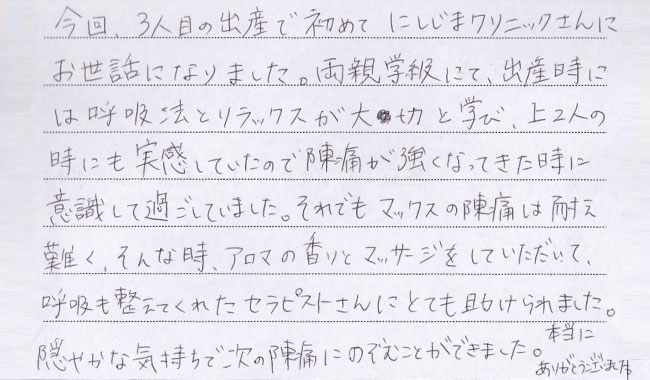 今回、3人目の出産で初めて にしじまクリニックさんに
お世話になりました。両親学級にて、出産時に
は呼吸法とリラックスが大切と学び、上2人の
時にも実感していたので陣痛が強くなってきた時に
意識して過ごしていました。それでもマックスの陣痛は耐え
難く、そんな時、アロマの香りとマッサージをしていただいて、
呼吸も整えてくれたセラピストさんにとても助けられました。
穏やかな気持ちで次の陣痛にのぞむことができました。本当に
ありがとうございました